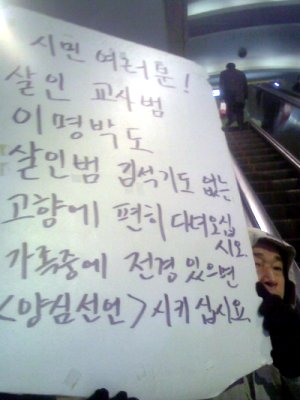 시민 여러분!
살인 교사범
이명박도
살인범 김석기도 없는
고향에 편히 다녀오십
시오.
가족중에 전경 있으면
<양심선언> 시키십시요